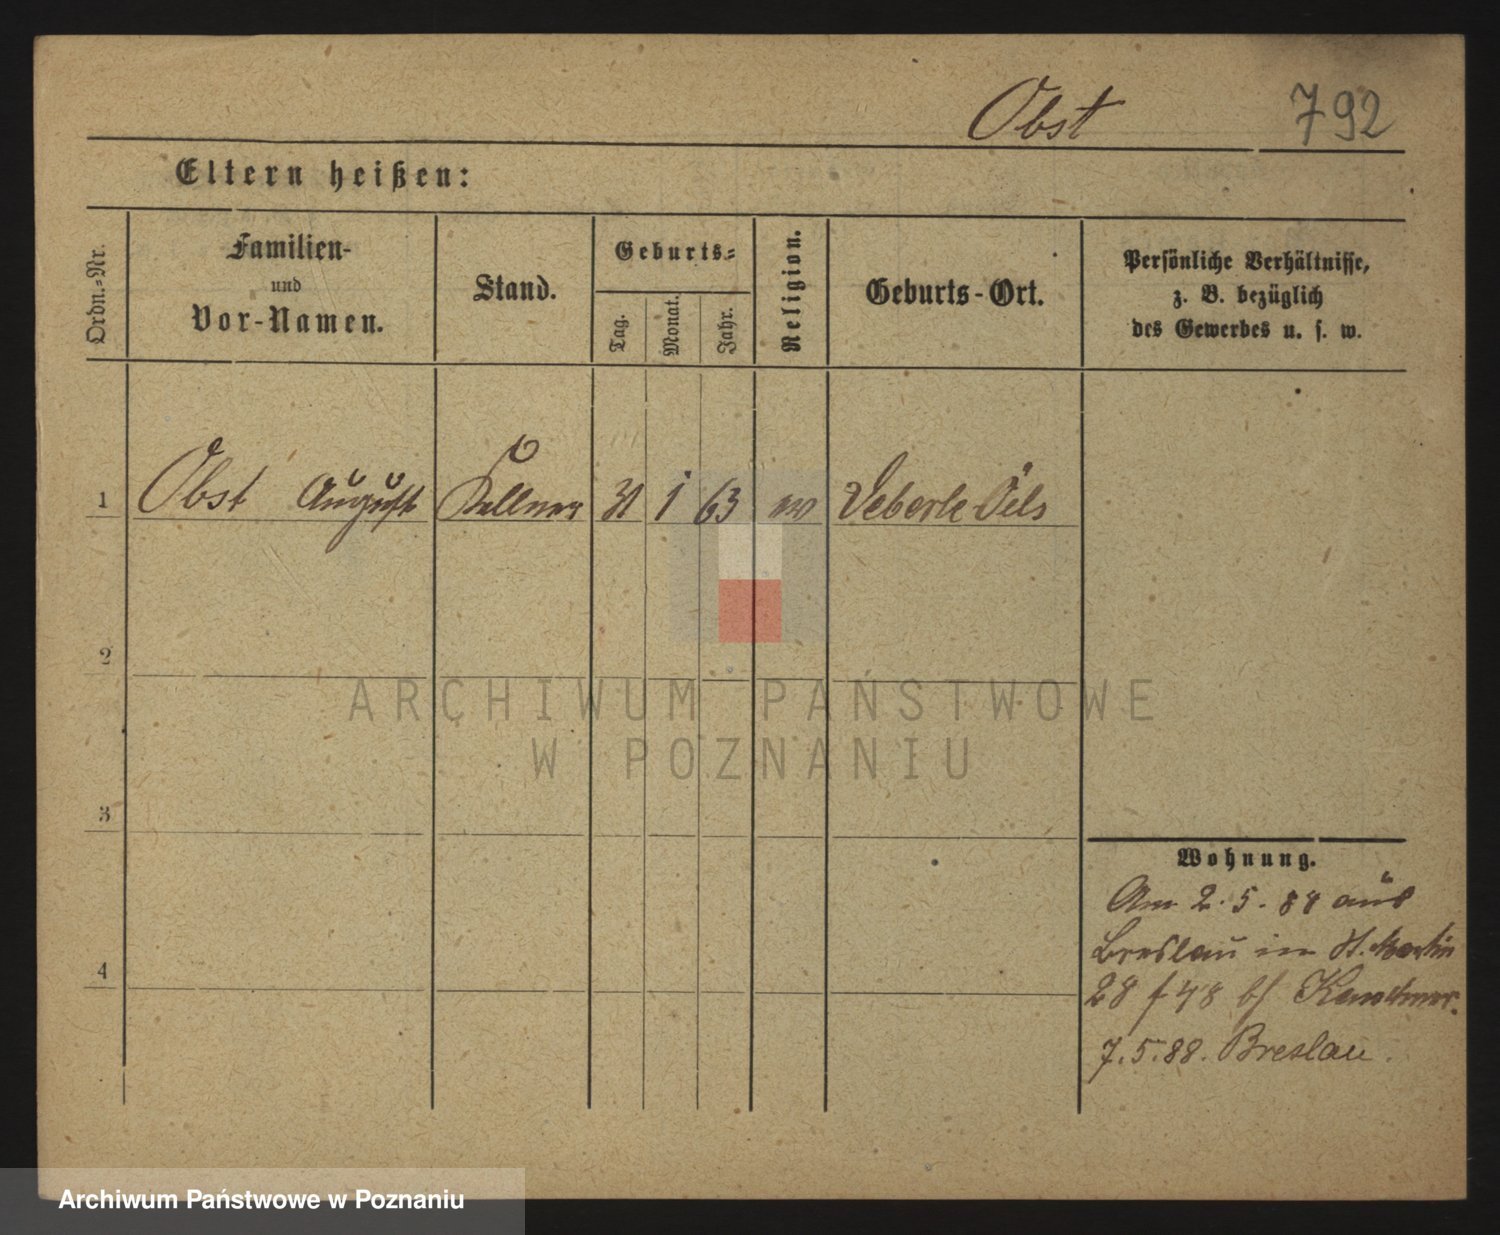 Obst 792
Eltern heißen:
Ordn.-Nr.
Familien-
und
Vor-Namen.
Stand.
Geburts-
Tag.
Monat.
Jahr.
Religion.
Geburts-Ort.
Persönliche Verhältnisse,
z. B. bezüglich
des Gewerbes u. s. w.
1 Obst August Kellner 31 1 63 ev Oels
2
3
4
Wohnung.
Am 2.5.88 aus
Breslau in St. Martin
28 bei
7.5.88. Breslau.
ARCHIWUM PAŃSTWOWE
W POZNANIU
Archiwum Państwowe w Poznaniu